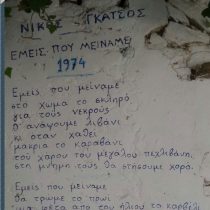 ΝΙΚΟΣ ΓΚΑΤΣΟΣ
ΕΜΕΙΣ ΠΟΥ ΜΕΙΝΑΜΕ
1974
Εμείς που μείναμε
στο χώμα το σκληρό
για τους νεκρούς
θ' ανάψουμε λιβάνι
κι όταν χαθεί
μακριά το καραβάνι
του χάρου του μεγάλου πεχλιβάνη,
στη μνήμη τους θα στήσουμε χορό.
Εμείς που μείναμε
θα τρώμε το πρωί
μια φέτα από του ήλιου το καρβέλι